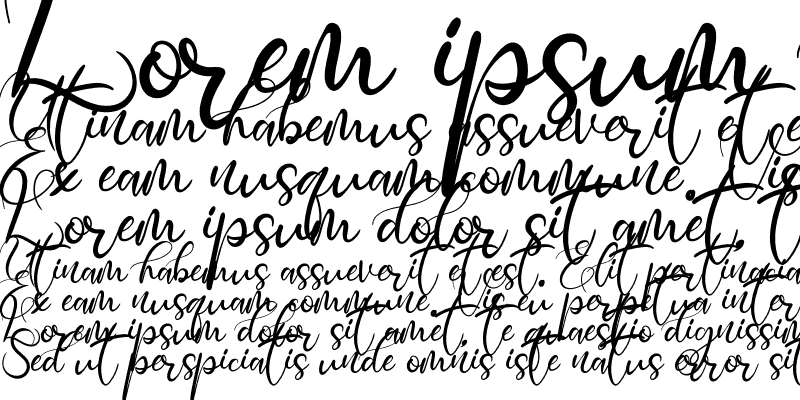 Lorem ipsum
Etinam habemus assueverit et e
Ex eam nusquam commune. Vis
Lorem ipsum dolor sit amet, t
Etinam habemus assueverit et est. Elit pertinacia
Ex eam nusquam commune. Vis eu perpetua inter
Lorem ipsum dolor sit amet, te quaestio dignissim
Sed ut perspiciatis unde omnis iste natus error sit